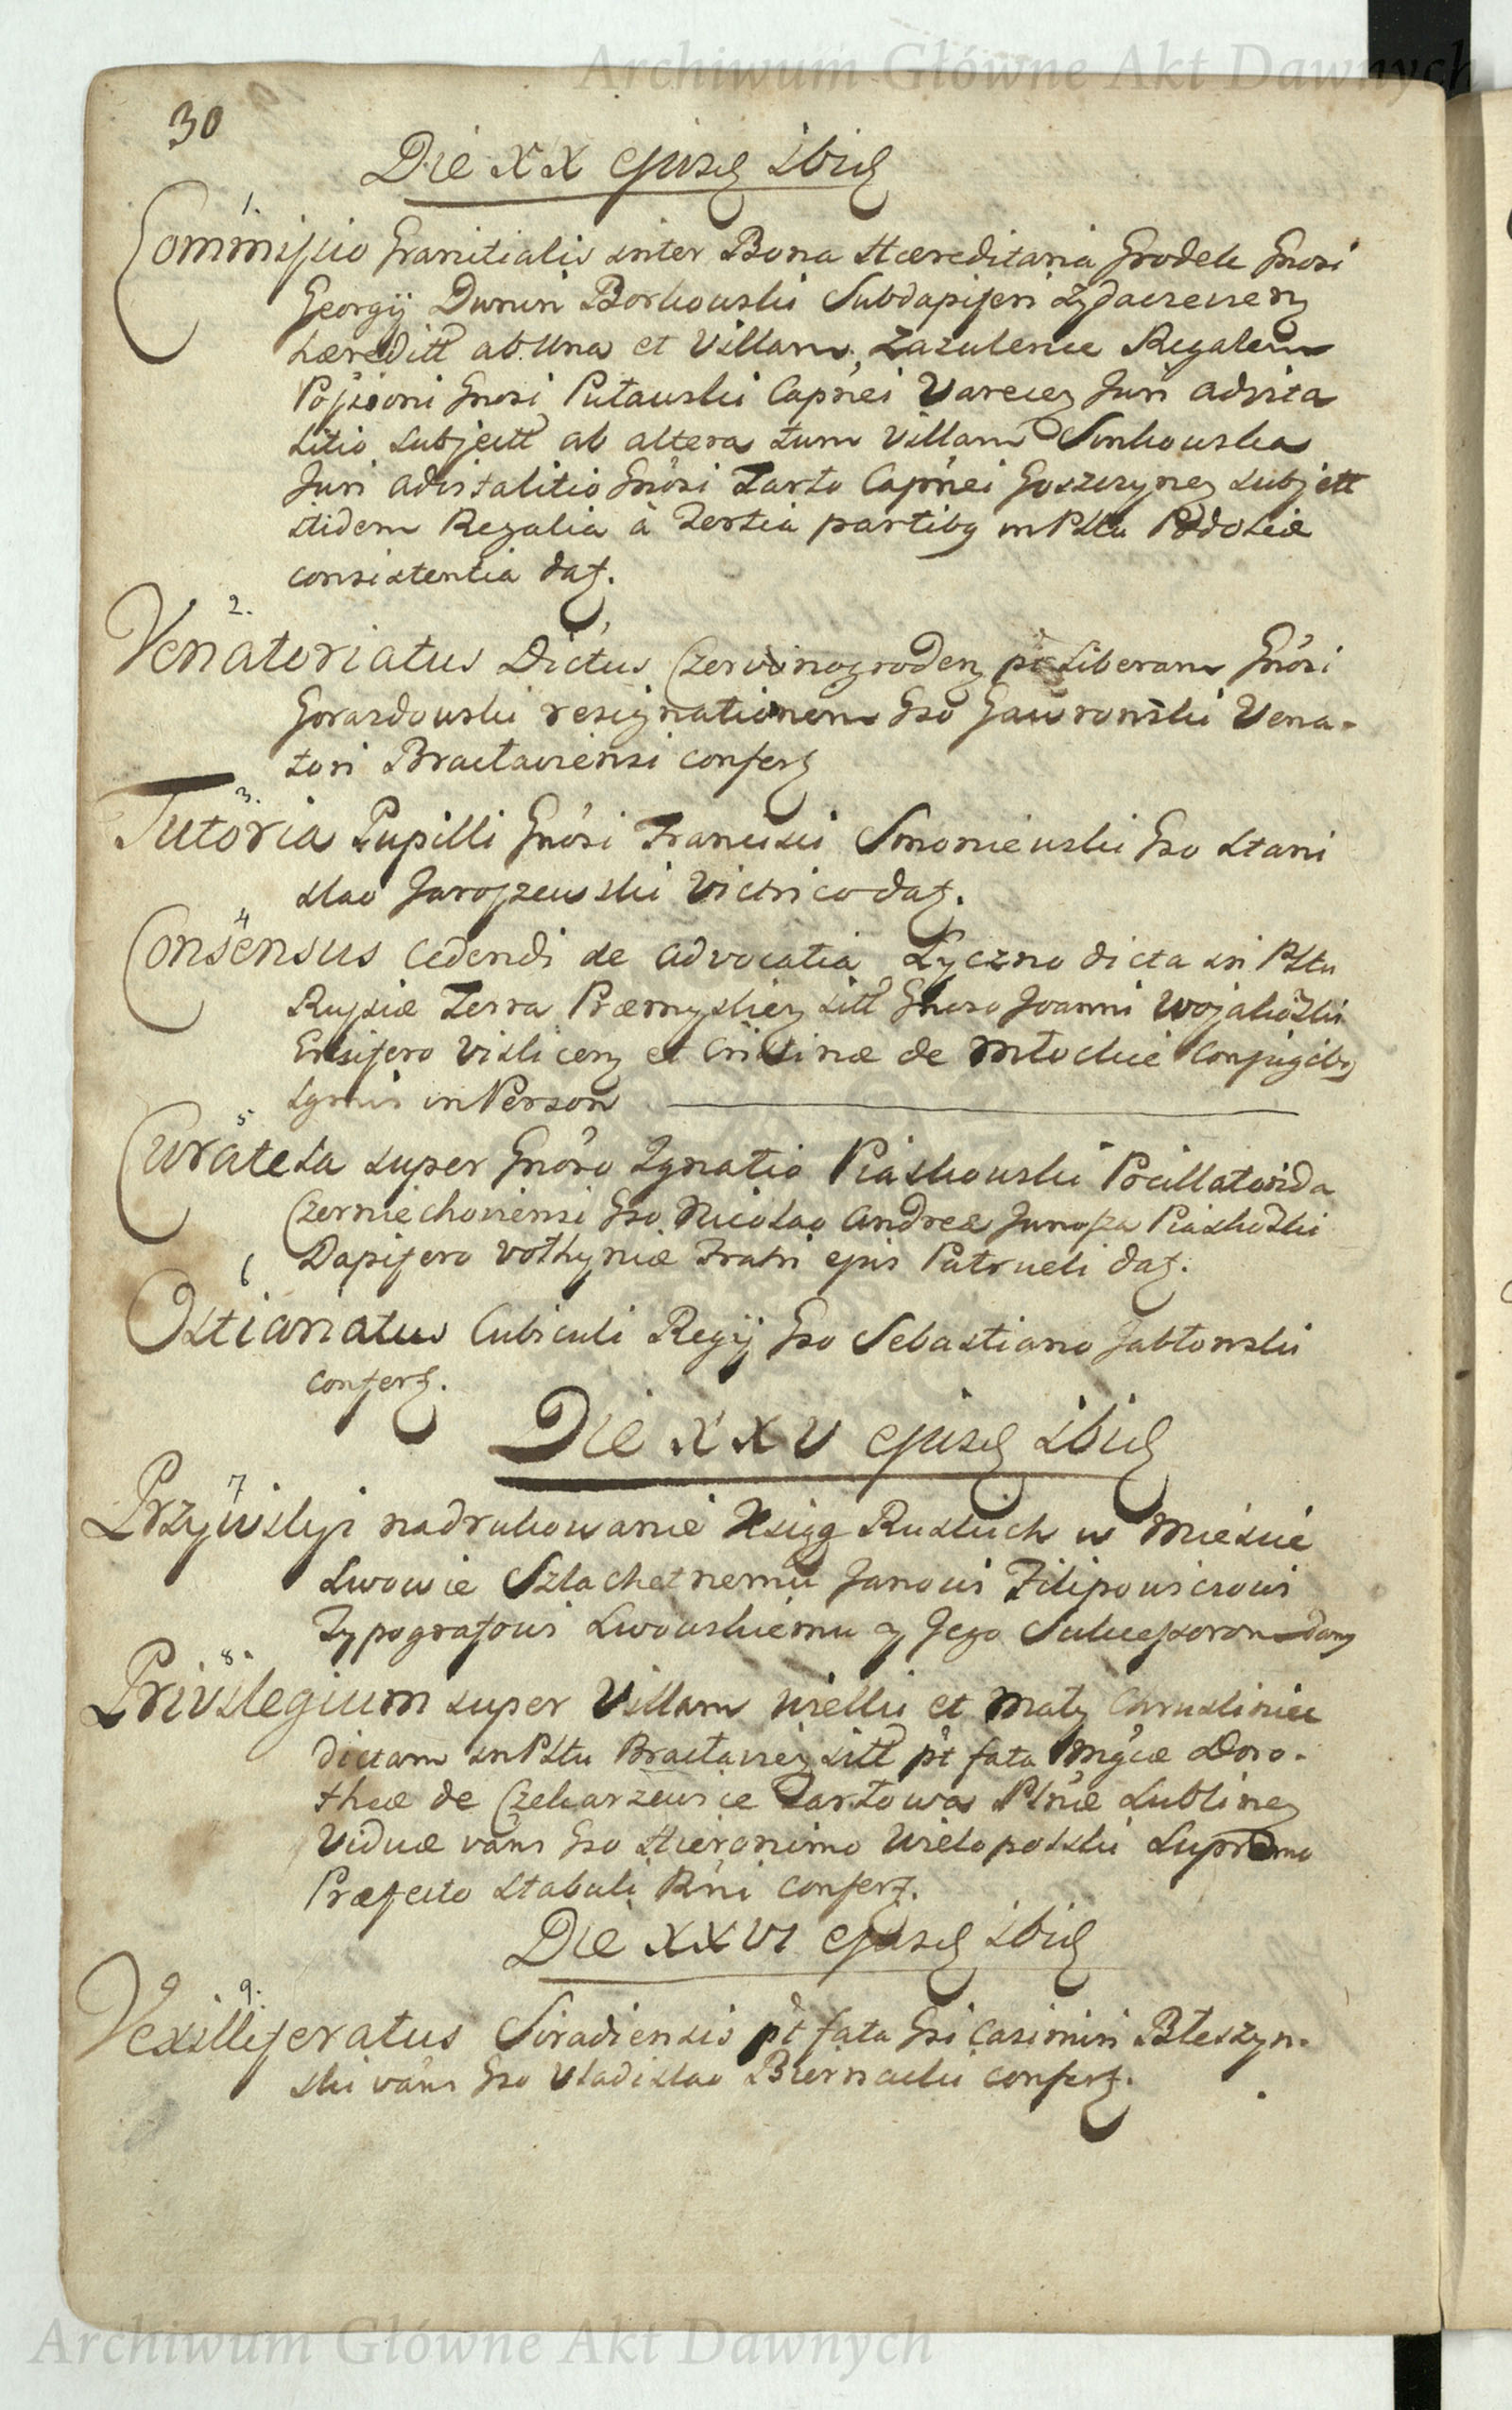 Archiwum Główne Akt Dawnych
30
Die XX ejusdq ibidq
1.
Commissio Granitialis inter Bona Hæreditaria Grodek Gnosi
Georgij Dunin Borkowski Subdapiferi Zydaczeven
hæreditt ab una et Villam Zazulence Regalem
Possessioni Gnosi Puławski Capnei Varecen Juri advita
litio subjectt ab altera tum Villam Sinkowska
Juri advitalitio Gnosi Tarło Capnei Goszczynen subjett
itidem Regalia à tertia partibq in Pttu Podoliæ
consistentia datq.
2.
Venatoriatus dictus Czerwinogroden pt liberam Gnosi
Gorazdowski resignationem Gso Gawronski Vena-
tori Bracłaviensi confertq
3.
Tutoria Pupilli Gnosi Francisci Smoniewski Gso Stani
slao Jaroszewski Victrico datq.
4
Consensus cedendi de advocatia Łyczno dicta in Pttu
Russiæ Terra Præmyslien sitt Gnoso Joanni Wojakoski
Ensifero Vislicen et Cristinæ de Młockie Conjugibq
Ignis in Person
5
Curatela super Gnoso Ignatio Piaskowski Pocillatorida
Czerniechoviensi Gso Nicolao Andreæ Junosza Piaskoski
Dapifero Vołhyniæ Fratri ejus Patrueli datq.
6
Ostiariatus Cubiculi Regij Gso Sebastiano Jabłonski
confertq.
Die XXV ejusdq ibidq
7
Przywiley nadrukowanie Xsiąg Ruskich w Miescie
Lwowie Szlachetnemu Janowi Filipowiczowi
Typografowi Lwowskiemu y Jego Sukcessorom dany
8.
Privilegium super Villam Wielki et Mały Chruslinice
dictam in Pttu Bracłavien sitt pt fata Mgcæ Doro-
theæ de Czekarzewice Tarłowa Ptnæ Lublinen
Viduæ vans Gso Hieronimo Wielopolski Supremo
Præfecto Stabuli Rni confertq.
Die XXVI ejusdq ibidq
9.
Vexilliferatus Siradiensis pt fata Gsi Casimiri Błeszyn-
ski vans Gso Vladislao Biernacki confertq.
Archiwum Główne Akt Dawnych